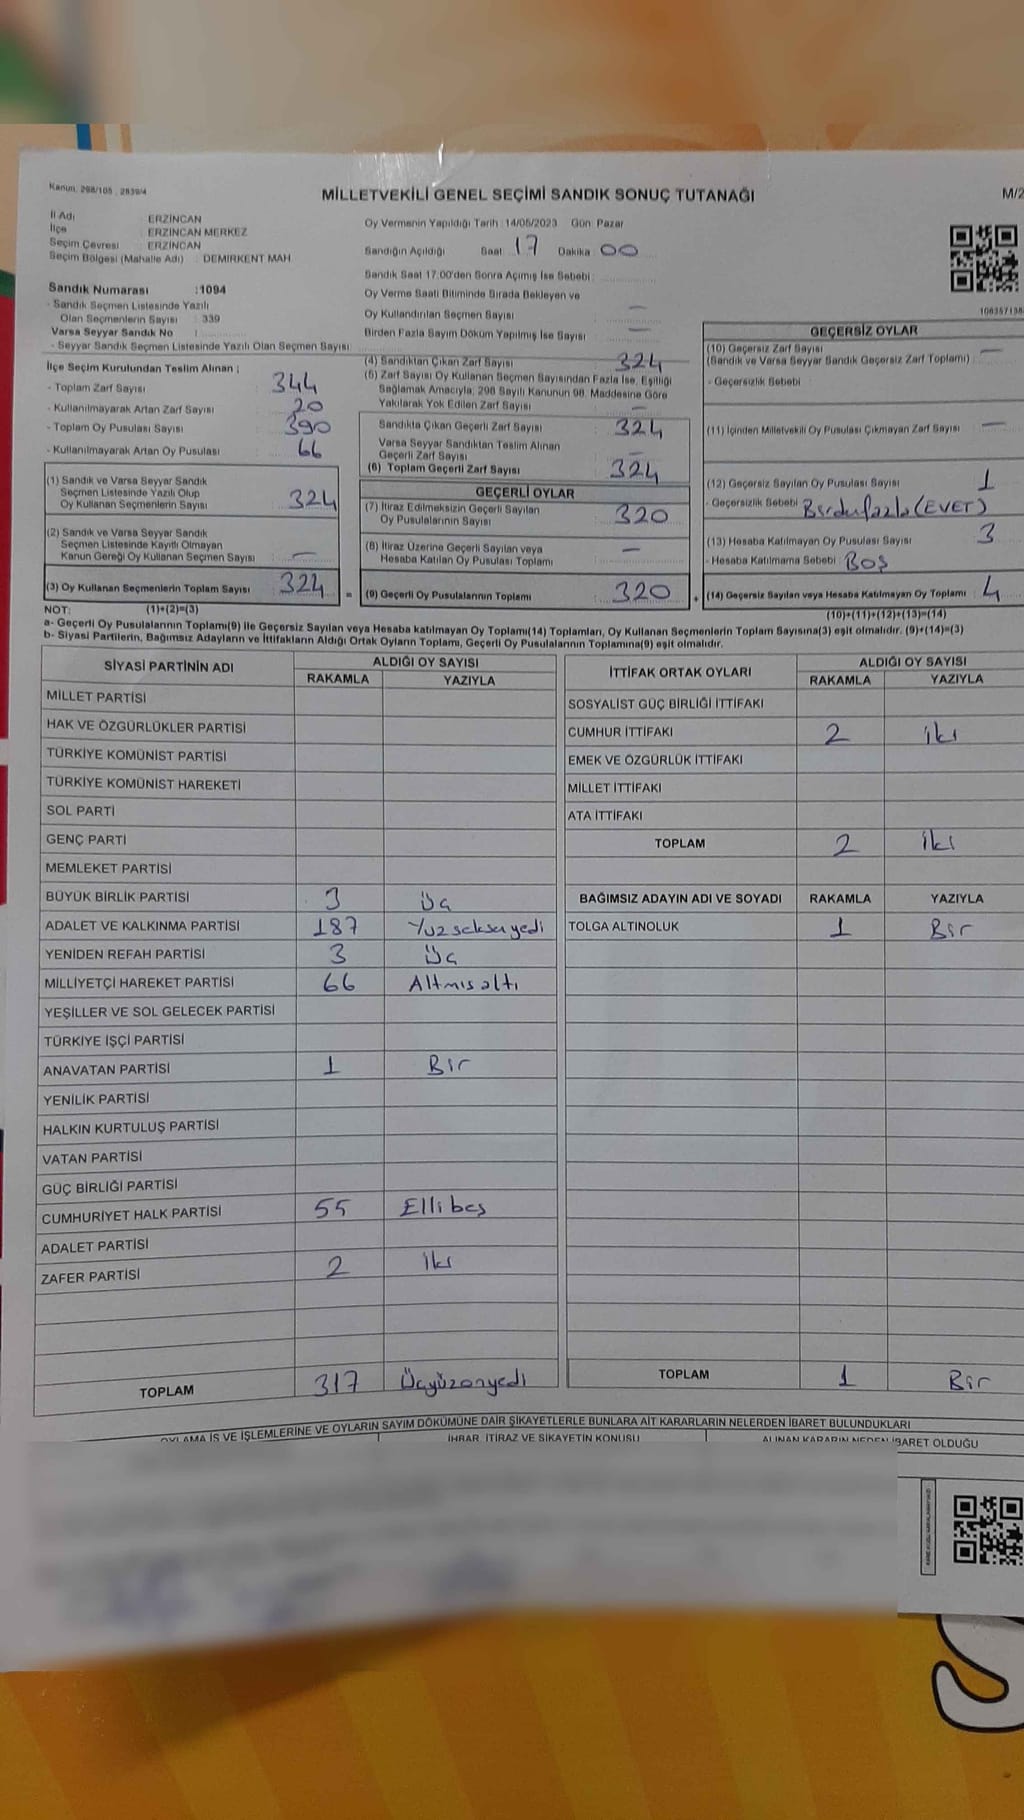 Kanun: 298/105 , 2839/4
MİLLETVEKİLİ GENEL SEÇİMİ SANDIK SONUÇ TUTANAĞI
M/2
İl Adı : ERZİNCAN
İlçe : ERZİNCAN MERKEZ
Seçim Çevresi : ERZİNCAN
Seçim Bölgesi (Mahalle Adı) : DEMİRKENT MAH.
Oy Vermenin Yapıldığı Tarih : 14/05/2023 Gün: Pazar
Sandığın Açıldığı Saat 17 Dakika 00
Sandık Saat 17:00'den Sonra Açımış İse Sebebi :
Oy Verme Saati Bitiminde Sırada Bekleyen ve
Oy Kullandırılan Seçmen Sayısı : —
Birden Fazla Sayım Döküm Yapılmış İse Sayısı : —
Sandık Numarası :1094
- Sandık Seçmen Listesinde Yazılı
Olan Seçmenlerin Sayısı : 339
Varsa Seyyar Sandık No :
- Seyyar Sandık Seçmen Listesinde Yazılı Olan Seçmen Sayısı:
İlçe Seçim Kurulundan Teslim Alınan ;
- Toplam Zarf Sayısı : 344
- Kullanılmayarak Artan Zarf Sayısı : 20
- Toplam Oy Pusulası Sayısı : 390
- Kullanılmayarak Artan Oy Pusulası : 66
(1) Sandık ve Varsa Seyyar Sandık
Seçmen Listesinde Yazılı Olup
Oy Kullanan Seçmenlerin Sayısı : 324
(2) Sandık ve Varsa Seyyar Sandık
Seçmen Listesinde Kayıtlı Olmayan
Kanun Gereği Oy Kullanan Seçmen Sayısı : —
(3) Oy Kullanan Seçmenlerin Toplam Sayısı : 324
=
(4) Sandıktan Çıkan Zarf Sayısı : 324
(5) Zarf Sayısı Oy Kullanan Seçmen Sayısından Fazla İse, Eşitliği
Sağlamak Amacıyla; 298 Sayılı Kanunun 98. Maddesine Göre
Yakılarak Yok Edilen Zarf Sayısı : —
Sandıkta Çıkan Geçerli Zarf Sayısı : 324
Varsa Seyyar Sandıktan Teslim Alınan
Geçerli Zarf Sayısı : —
(6) Toplam Geçerli Zarf Sayısı : 324
GEÇERLİ OYLAR
(7) İtiraz Edilmeksizin Geçerli Sayılan
Oy Pusulalarının Sayısı : 320
(8) İtiraz Üzerine Geçerli Sayılan veya
Hesaba Katılan Oy Pusulası Toplamı : —
(9) Geçerli Oy Pusulalarının Toplamı : 320
+
GEÇERSİZ OYLAR
(10) Geçersiz Zarf Sayısı
(Sandık ve Varsa Seyyar Sandık Geçersiz Zarf Toplamı) : —
- Geçersizlik Sebebi :
(11) İçinden Milletvekili Oy Pusulası Çıkmayan Zarf Sayısı : —
(12) Geçersiz Sayılan Oy Pusulası Sayısı : 1
- Geçersizlik Sebebi : Birdenfazla (EVET)
(13) Hesaba Katılmayan Oy Pusulası Sayısı : 3
- Hesaba Katılmama Sebebi : Boş
(14) Geçersiz Sayılan veya Hesaba Katılmayan Oy Toplamı : 4
NOT: (1)+(2)=(3)
(10)+(11)+(12)+(13)=(14)
a- Geçerli Oy Pusulalarının Toplamı(9) ile Geçersiz Sayılan veya Hesaba katılmayan Oy Toplamı(14) Toplamları, Oy Kullanan Seçmenlerin Toplam Sayısına(3) eşit olmalıdır. (9)+(14)=(3)
b- Siyasi Partilerin, Bağımsız Adayların ve İttifakların Aldığı Ortak Oyların Toplamı, Geçerli Oy Pusulalarının Toplamına(9) eşit olmalıdır.
SİYASİ PARTİNİN ADI
ALDIĞI OY SAYISI
RAKAMLA YAZIYLA
MİLLET PARTİSİ
HAK VE ÖZGÜRLÜKLER PARTİSİ
TÜRKİYE KOMÜNİST PARTİSİ
TÜRKİYE KOMÜNİST HAREKETİ
SOL PARTİ
GENÇ PARTİ
MEMLEKET PARTİSİ
BÜYÜK BİRLİK PARTİSİ 3 Üç
ADALET VE KALKINMA PARTİSİ 187 Yüzseksenyedi
YENİDEN REFAH PARTİSİ 3 Üç
MİLLİYETÇİ HAREKET PARTİSİ 66 Altmışaltı
YEŞİLLER VE SOL GELECEK PARTİSİ
TÜRKİYE İŞÇİ PARTİSİ
ANAVATAN PARTİSİ 1 Bir
YENİLİK PARTİSİ
HALKIN KURTULUŞ PARTİSİ
VATAN PARTİSİ
GÜÇ BİRLİĞİ PARTİSİ
CUMHURİYET HALK PARTİSİ 55 Ellibeş
ADALET PARTİSİ
ZAFER PARTİSİ 2 İki
TOPLAM 317 Üçyüzonyedi
İTTİFAK ORTAK OYLARI
ALDIĞI OY SAYISI
RAKAMLA YAZIYLA
SOSYALİST GÜÇ BİRLİĞİ İTTİFAKI
CUMHUR İTTİFAKI 2 İki
EMEK VE ÖZGÜRLÜK İTTİFAKI
MİLLET İTTİFAKI
ATA İTTİFAKI
TOPLAM 2 İki
BAĞIMSIZ ADAYIN ADI VE SOYADI RAKAMLA YAZIYLA
TOLGA ALTINOLUK 1 Bir
TOPLAM 1 Bir
OYLAMA İŞ VE İŞLEMLERİNE VE OYLARIN SAYIM DÖKÜMÜNE DAİR ŞİKAYETLERLE BUNLARA AİT KARARLARIN NELERDEN İBARET BULUNDUKLARI
İHBAR, İTİRAZ VE ŞİKAYETİN KONUSU
ALINAN KARARIN NEDEN İBARET OLDUĞU